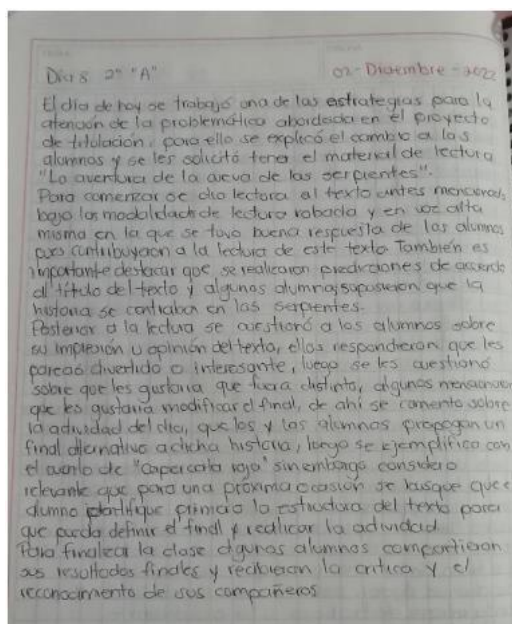 Dia 8 2° "A" 02-Diciembre-2022
El dia de hoy se trabajó una de las estrategias para la
atención de la problemática abordada en el proyecto
de titulación, para ello se explicó el cambio a los
alumnos y se les solicitó tener el material de lectura
"La aventura de la cueva de las serpientes".
Para comenzar se dio lectura al texto antes mencionado,
bajo las modalidades de lectura robada y en voz alta
misma en la que se tuvo buena respuesta de los alumnos
pues contribuyeron a la lectura de este texto. También es
importante destacar que se realizaron predicciones de acuerdo
al título del texto y algunos alumnos suposieron que la
historia se centraba en las serpientes.
Posterior a la lectura se cuestionó a los alumnos sobre
su impresión u opinión del texto, ellos respondieron que les
pareció divertido o interesante, luego se les cuestionó
sobre que les gustaría que fuera distinto, algunos mencionaron
que les gustaría modificar el final, de ahí se comento sobre
la actividad del dia, que los y las alumnos propongan un
final alternativo a dicha historia, luego se ejemplifico con
el cuento de "Caperucita roja" sin embargo considero
relevante que para una próxima ocasión se busque que el
alumno identifique primero la estructura del texto para
que pueda definir el final y realizar la actividad
Para finalizar la clase algunos alumnos compartieron
sus resultados finales y recibieron la critica y el
reconocimiento de sus compañeros